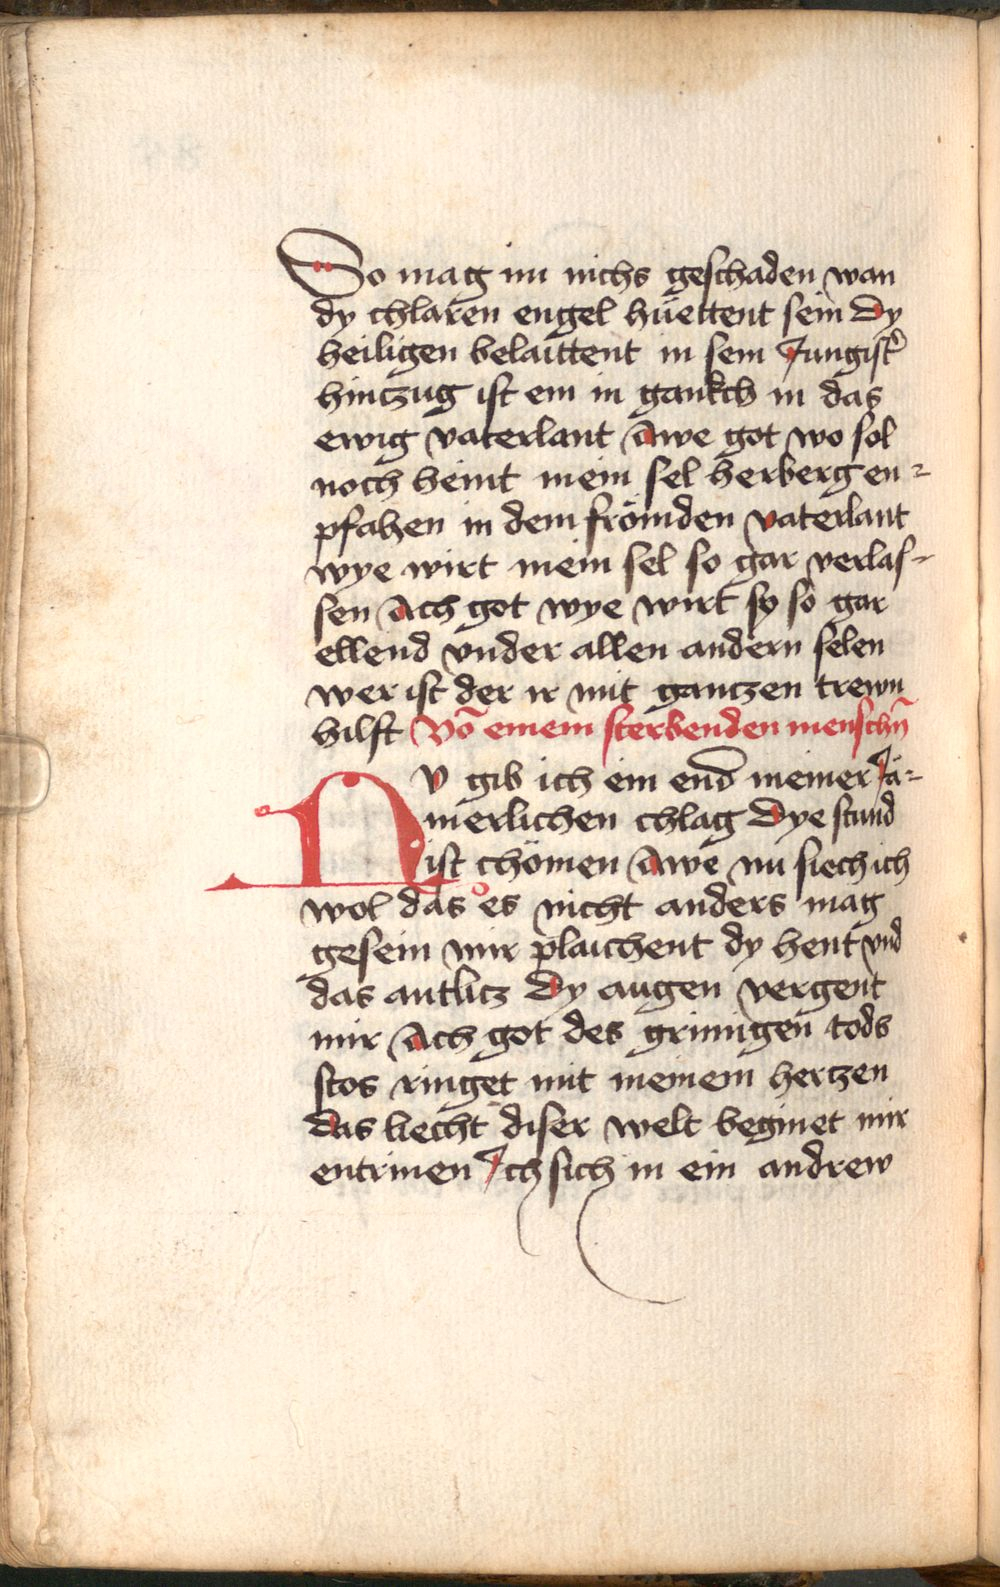 So mag im nichs geschaden wan
dy chlaren engel hüettent sein Dy
heiligen belaittent in sein Jungist͛
hinczug ist ein in gankch in das
ewig vaterlant Awe got wo sol
noch heint mein sel herberg en⸗
pfahen in dem frömden vaterlant
wye wirt mein sel so gar verlas⸗
sen Ach got wye wirt sy so gar
ellend vnder allen andern selen
wer ist der ir mit ganczen trewn
hilft Vō einem sterbenden menschn̄
NV gib ich ein end meiner Jä⸗
merlichen chlag Dye stund
ist chömen Awe nu siech ich
wol das es nicht anders mag
gesein mir plaichent dy hent vnd
das antlicz Dy augen vergent
mir Ach got des grimigen tods
stos ringet mit meinem herczen
Das liecht diser welt beginet mir
entrinen Ich sich in ein andrew